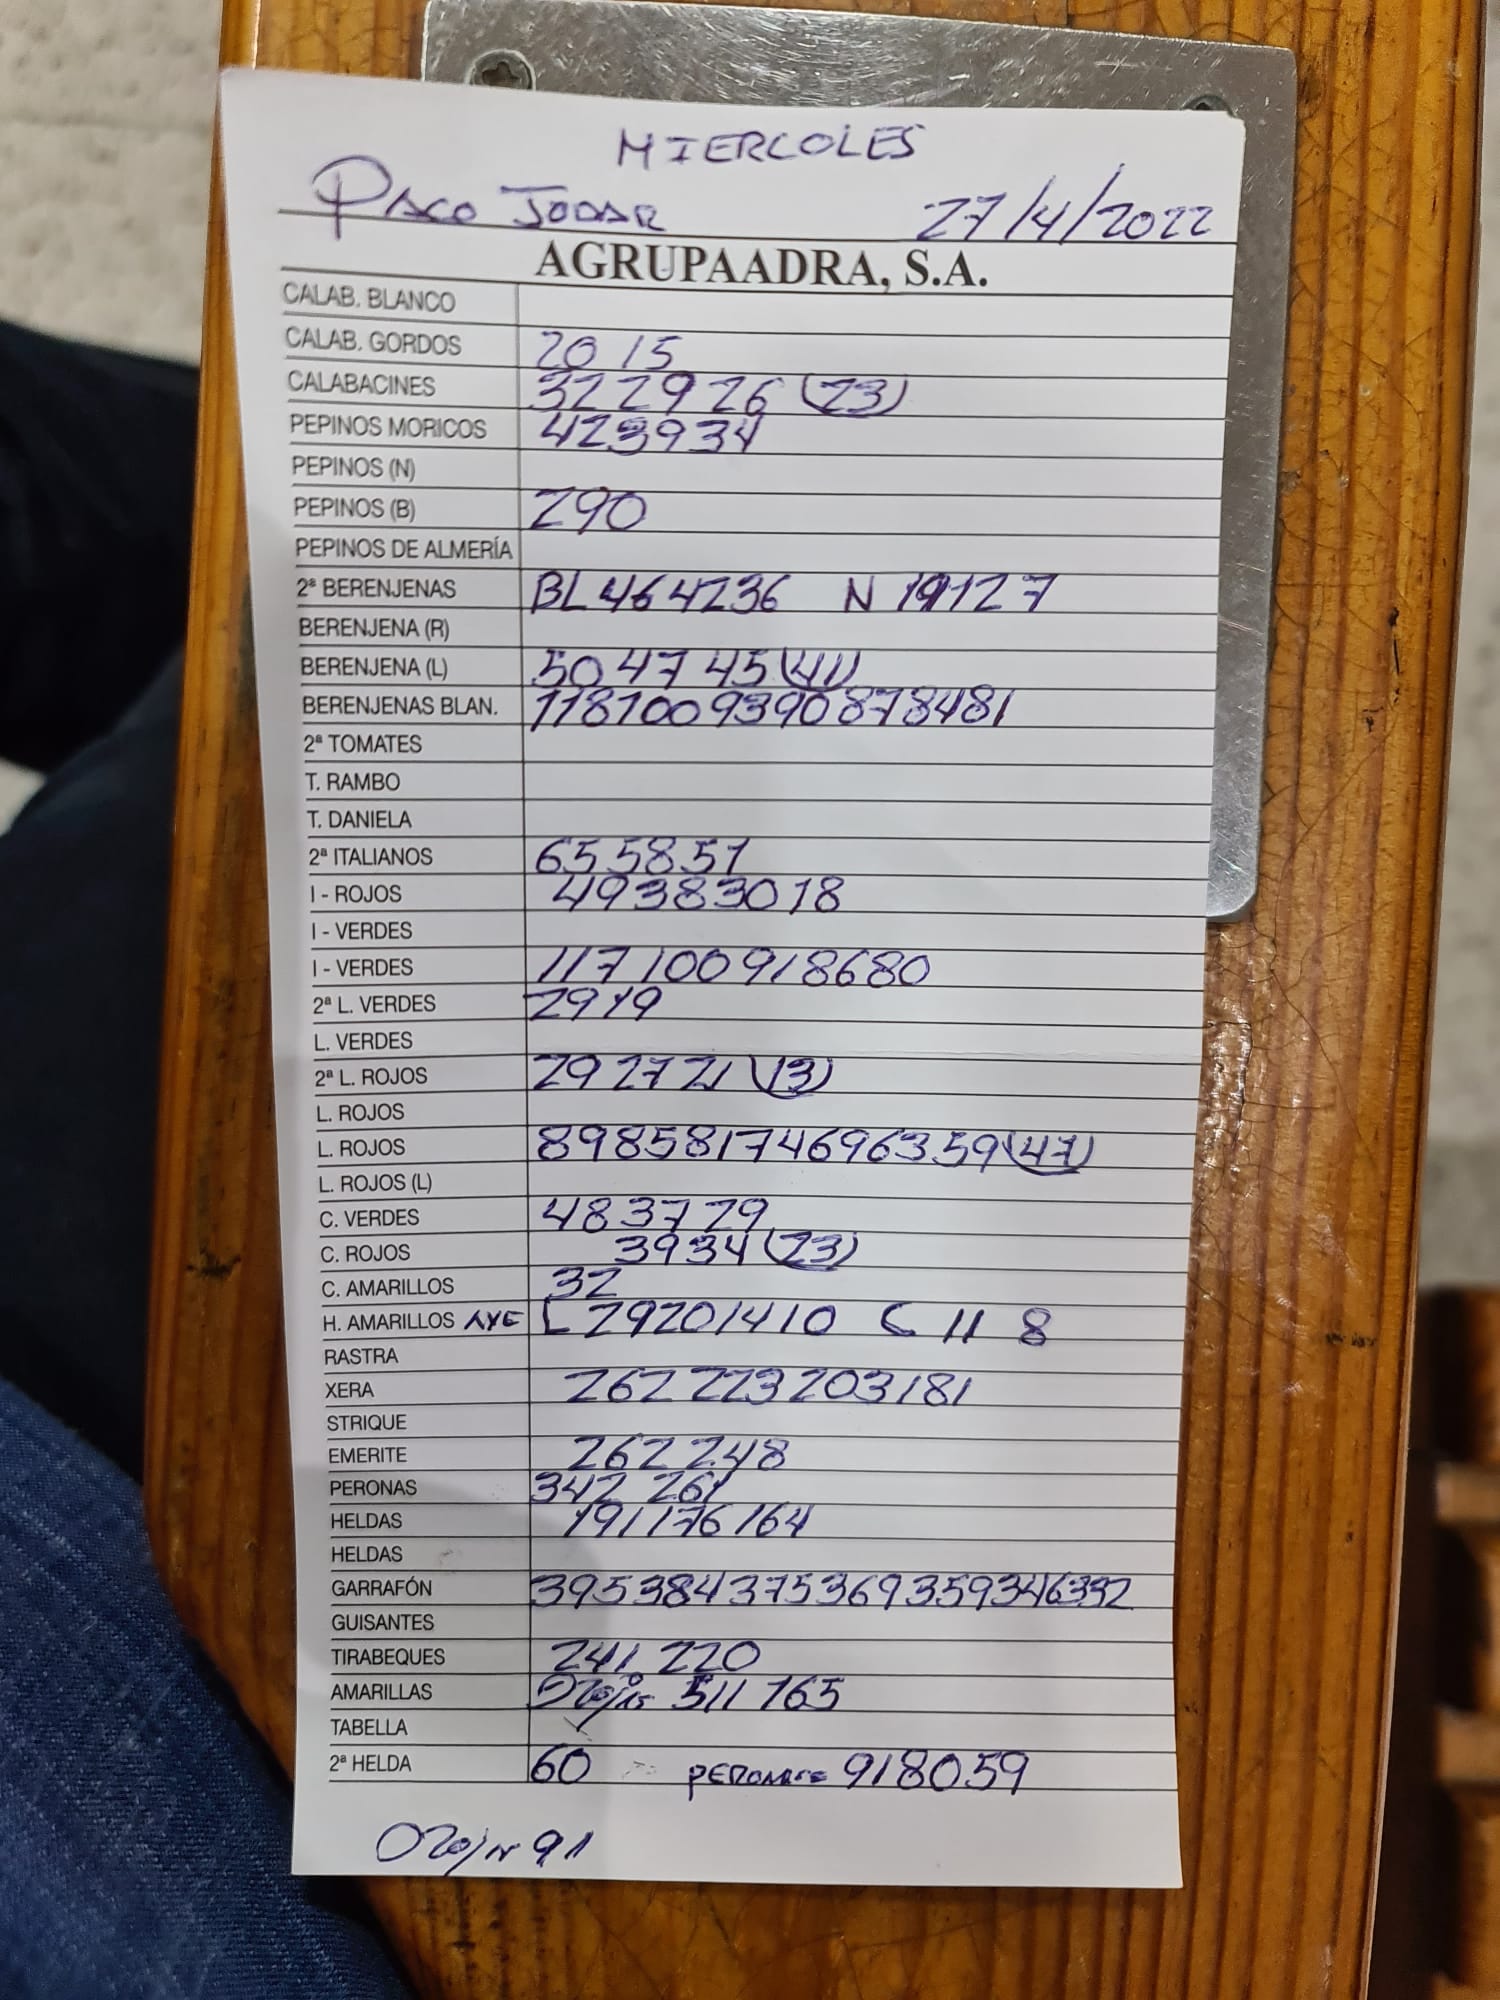 MIERCOLES
PACO JODAR 27/4/2022
AGRUPAADRA, S.A.
CALAB. BLANCO
CALAB. GORDOS 20 15
CALABACINES 32 29 26 (23)
PEPINOS MORICOS 42 39 34
PEPINOS (N)
PEPINOS (B) 290
PEPINOS DE ALMERÍA
2ª BERENJENAS BL 46 42 36 N 19 12 7
BERENJENA (R)
BERENJENA (L) 50 47 45 (41)
BERENJENAS BLAN. 118 100 93 90 87 84 81
2ª TOMATES
T. RAMBO
T. DANIELA
2ª ITALIANOS 65 58 51
I - ROJOS 49 38 30 18
I - VERDES
I - VERDES 117 100 91 86 80
2ª L. VERDES 29 19
L. VERDES
2ª L. ROJOS 29 27 21 (13)
L. ROJOS
L. ROJOS 89 85 81 74 69 63 59 (47)
L. ROJOS (L)
C. VERDES 48 37 29
C. ROJOS 39 34 (23)
C. AMARILLOS 32
H. AMARILLOS AYE L 29 20 14 10 C 11 8
RASTRA
XERA 262 223 203 181
STRIQUE
EMERITE 262 248
PERONAS 342 261
HELDAS 191 176 164
HELDAS
GARRAFÓN 395 384 375 369 359 346 332
GUISANTES
TIRABEQUES 241 220
AMARILLAS 511 165
TABELLA
2ª HELDA 60 91 80 59
91